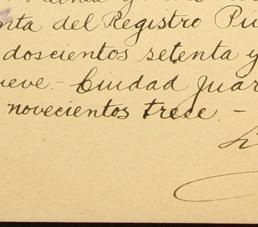 nta del Registro Pu
doscientos setenta y
ueve.- Ciudad Juar
novecientos trece.-